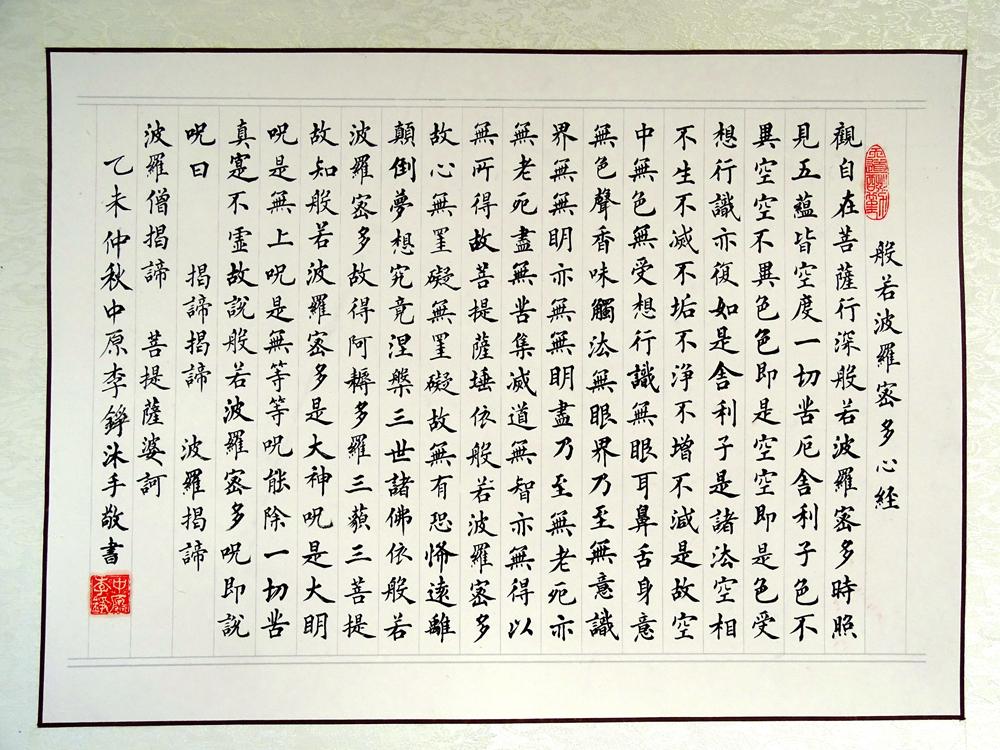 般若波羅密多心経
觀自在菩薩行深般若波羅密多時照
見五蘊皆空度一切苦厄舍利子色不
異空空不異色色即是空空即是色受
想行識亦復如是舍利子是諸法空相
不生不滅不垢不淨不增不減是故空
中無色無受想行識無眼耳鼻舌身意
無色聲香味觸法無眼界乃至無意識
界無無明亦無無明盡乃至無老死亦
無老死盡無苦集滅道無智亦無得以
無所得故菩提薩埵依般若波羅密多
故心無罣礙無罣礙故無有恐怖遠離
顛倒夢想究竟涅槃三世諸佛依般若
波羅密多故得阿耨多羅三藐三菩提
故知般若波羅密多是大神呪是大明
呪是無上呪是無等等呪能除一切苦
真實不虛故說般若波羅密多呪即說
呪曰 揭諦揭諦 波羅揭諦
波羅僧揭諦 菩提薩婆訶
乙未仲秋中原李錚沐手敬書
中原李錚